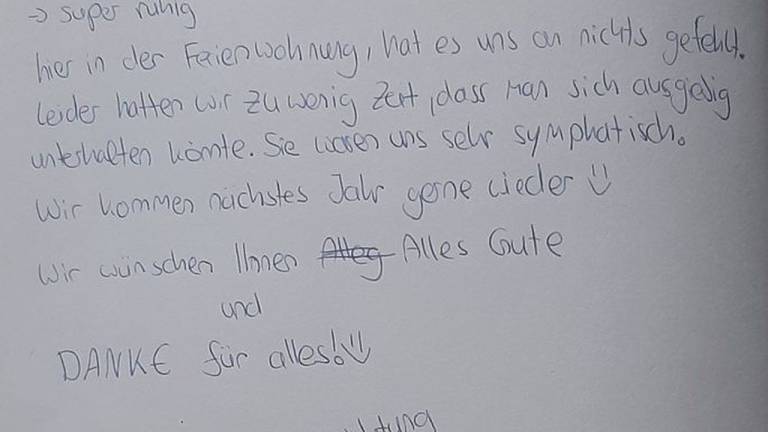 → super ruhig
hier in der Ferienwohnung, hat es uns an nichts gefehlt.
Leider hatten wir zu wenig Zeit, dass man sich ausgiebig
unterhalten könnte. Sie waren uns sehr symphatisch.
Wir kommen nächstes Jahr gerne wieder
Wir wünschen Ihnen Alles Gute
und
DANKE für alles!